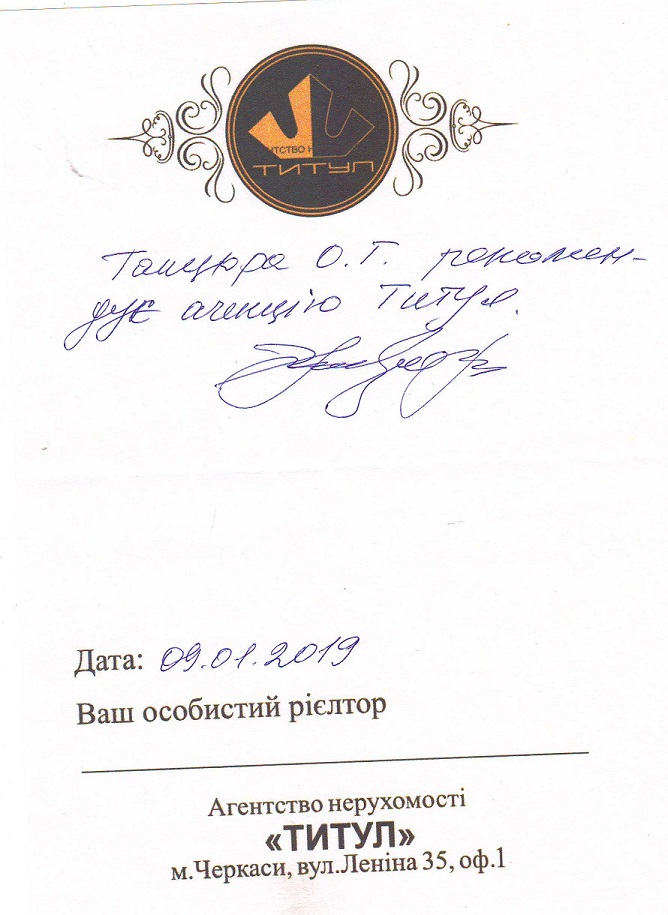 ТСТВО Н
ТИТУЛ
Танцюра О.Г. рекомен-
дує агенцію Титул.
Дата: 09.01.2019
Ваш особистий рієлтор
Агентство нерухомості
«ТИТУЛ»
м.Черкаси, вул.Леніна 35, оф.1